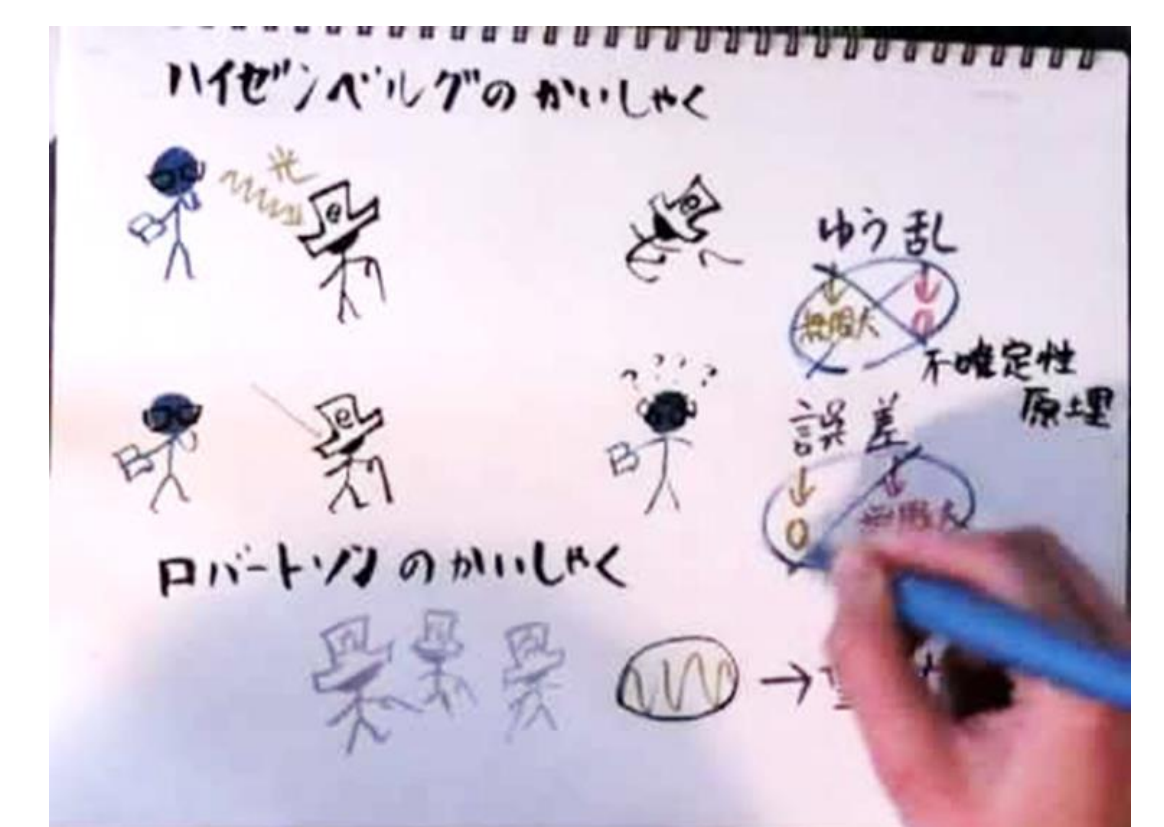 ハイゼンベルグのかいしゃく
光
e
e
ゆう乱
無限大
0
不確定性
原理
????
e
誤差
0
無限大
ロバートソンのかいしゃく
→